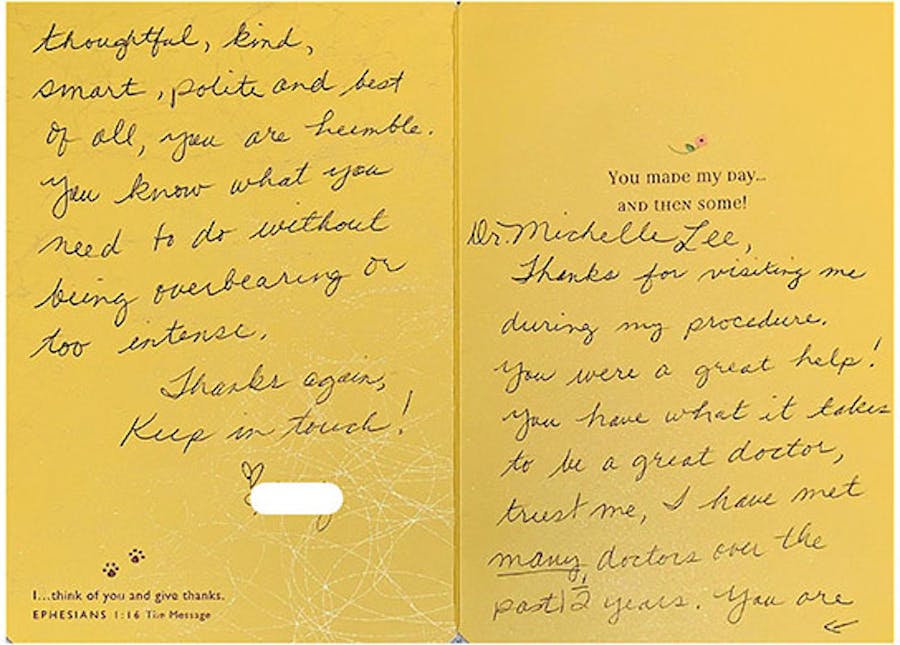 You made my day...
and then some!
Dr. Michelle Lee,
Thanks for visiting me
during my procedure.
You were a great help!
You have what it takes
to be a great doctor,
trust me, I have met
many doctors over the
past 12 years. You are
←
thoughtful, kind,
smart, polite and best
of all, you are humble.
You know what you
need to do without
being overbearing or
too intense.
Thanks again,
Keep in touch!
I...think of you and give thanks.
EPHESIANS 1:16 The Message